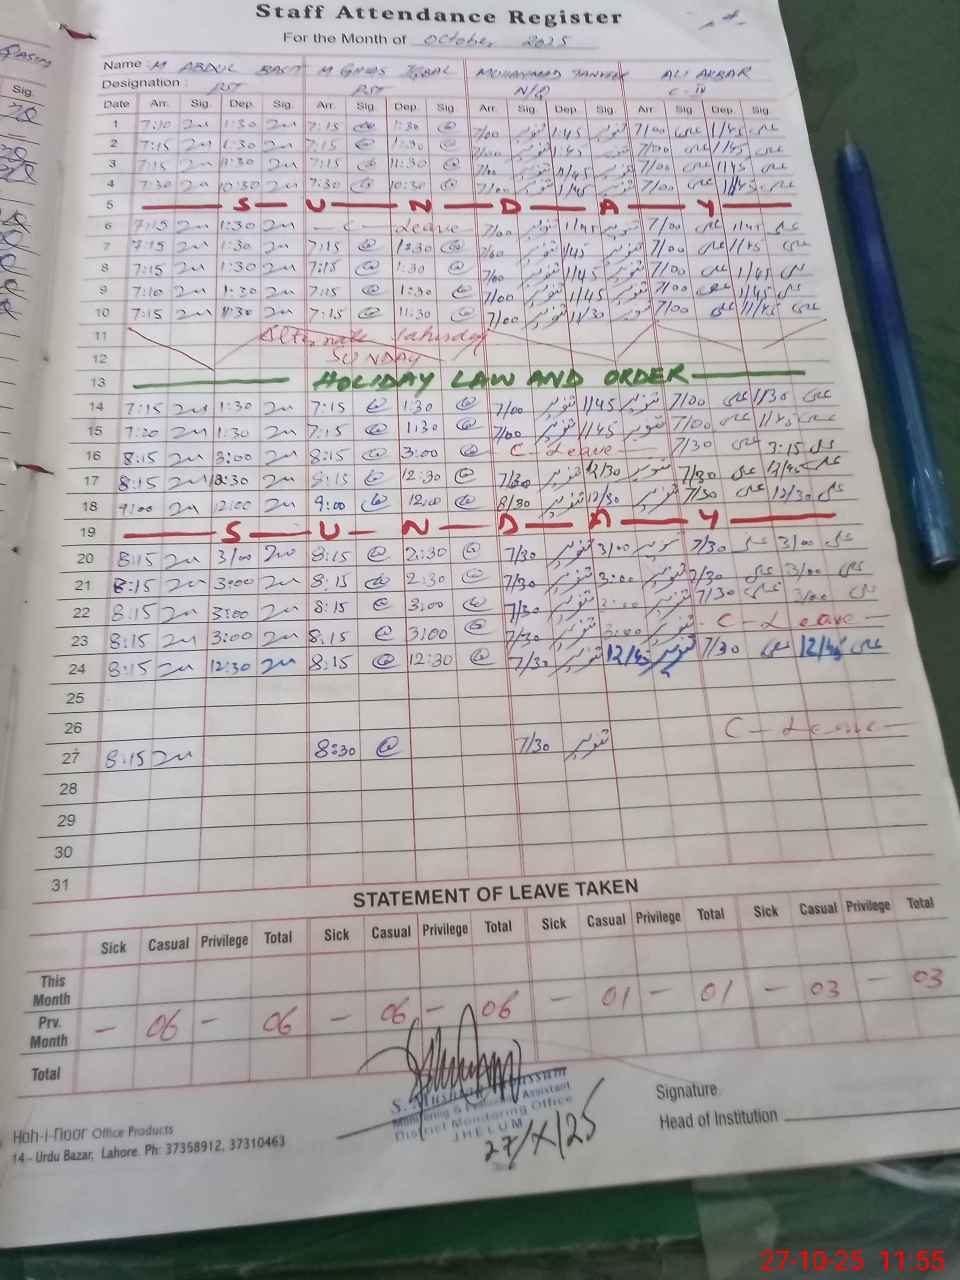 Staff Attendance Register
For the Month of October 2025
Name: M ABDUL BASIT M GHOS IQBAL MUHAMMAD TANVEER ALI AKBAR
Designation: PST PST N/Q C-IV
Sig.
Date Arr. Sig. Dep. Sig. Arr. Sig. Dep. Sig. Arr. Sig. Dep. Sig. Arr. Sig. Dep. Sig.
1 7:10 1:30 7:15 1:30 7/00 تنویر 1:45 تنویر 7/00 علی 1/45 علی
2 7:15 1:30 7:15 1:30 7/00 تنویر 1:45 تنویر 7/00 علی 1/45 علی
3 7:15 11:30 7:15 11:30 7/00 تنویر 11/45 تنویر 7/00 علی 11/45 علی
4 7:30 10:30 7:30 10:30 7/00 تنویر 1/45 تنویر 7/00 علی 1/45 علی
5 S U N D A Y
6 7:15 1:30 - C - Leave - 7/00 تنویر 1/45 تنویر 7/00 علی 1/45 علی
7 7:15 1:30 7:15 1:30 7/00 تنویر 1/45 تنویر 7/00 علی 1/45 علی
8 7:15 1:30 7:15 1:30 7/00 تنویر 1/45 تنویر 7/00 علی 1/45 علی
9 7:10 1:30 7:15 1:30 7/00 تنویر 1/45 تنویر 7/00 علی 1/45 علی
10 7:15 11:30 7:15 11:30 7/00 تنویر 11/30 تنویر 7/00 علی 11/45 علی
11 Alternate Saturday
12 SUNDAY
13 HOLIDAY LAW AND ORDER
14 7:15 1:30 7:15 1:30 7/00 تنویر 1/45 تنویر 7/00 علی 1/30 علی
15 7:20 1:30 7:15 1:30 7/00 تنویر 1/45 تنویر 7/00 علی 1/45 علی
16 8:15 3:00 8:15 3:00 C - Leave - 7/30 علی 3:15 علی
17 8:15 12:30 8:15 12:30 7/30 تنویر 12/30 تنویر 7/30 علی 12/45 علی
18 9:00 12:00 9:00 12:00 8/30 تنویر 12/30 تنویر 7/30 علی 12/30 علی
19 S U N D A Y
20 8:15 3/00 8:15 2:30 7/30 تنویر 3/00 تنویر 7/30 علی 3/00 علی
21 8:15 3:00 8:15 2:30 7/30 تنویر 3:00 تنویر 7/30 علی 3/00 علی
22 8:15 3:00 8:15 3:00 7/30 تنویر 3:00 تنویر 7/30 علی 3/00 علی
23 8:15 3:00 8:15 3:00 7/30 تنویر 3:00 تنویر - C - Leave -
24 8:15 12:30 8:15 12:30 7/30 تنویر 12/45 تنویر 7/30 علی 12/45 علی
25
26
27 8:15 8:30 7/30 تنویر C - Leave -
28
29
30
31
STATEMENT OF LEAVE TAKEN
Sick Casual Privilege Total Sick Casual Privilege Total Sick Casual Privilege Total Sick Casual Privilege Total
This Month
Prv. Month - 06 - 06 - 06 - 06 - 01 - 01 - 03 - 03
Total
Monitoring & Assistant
District Monitoring Office
JHELUM
27/X/25
Signature.
Head of Institution
Hoh-i-noor Office Products
14 - Urdu Bazar, Lahore. Ph: 37358912, 37310463
27-10-25 11:55